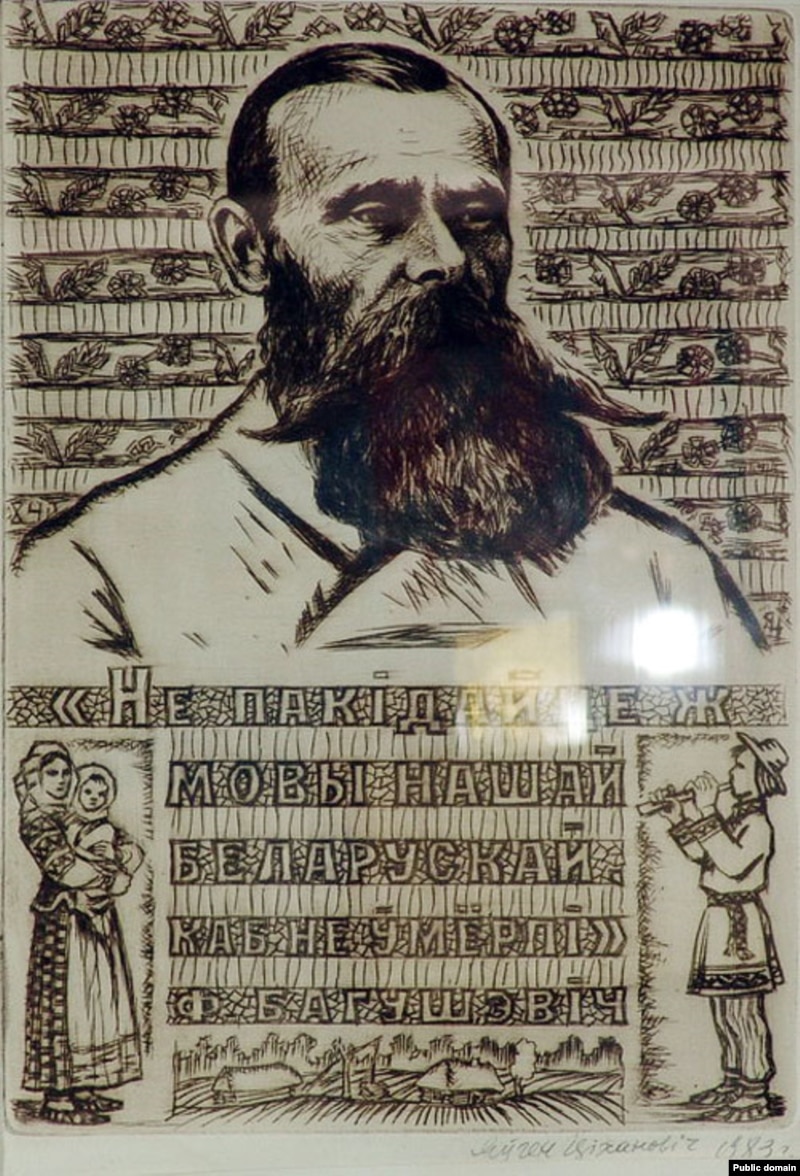 «Не пакідайце ж
мовы нашай
беларускай,
каб не ўмёрлі»
Ф. Багушэвіч
Яўген Ціхановіч 1983 г.
Public domain